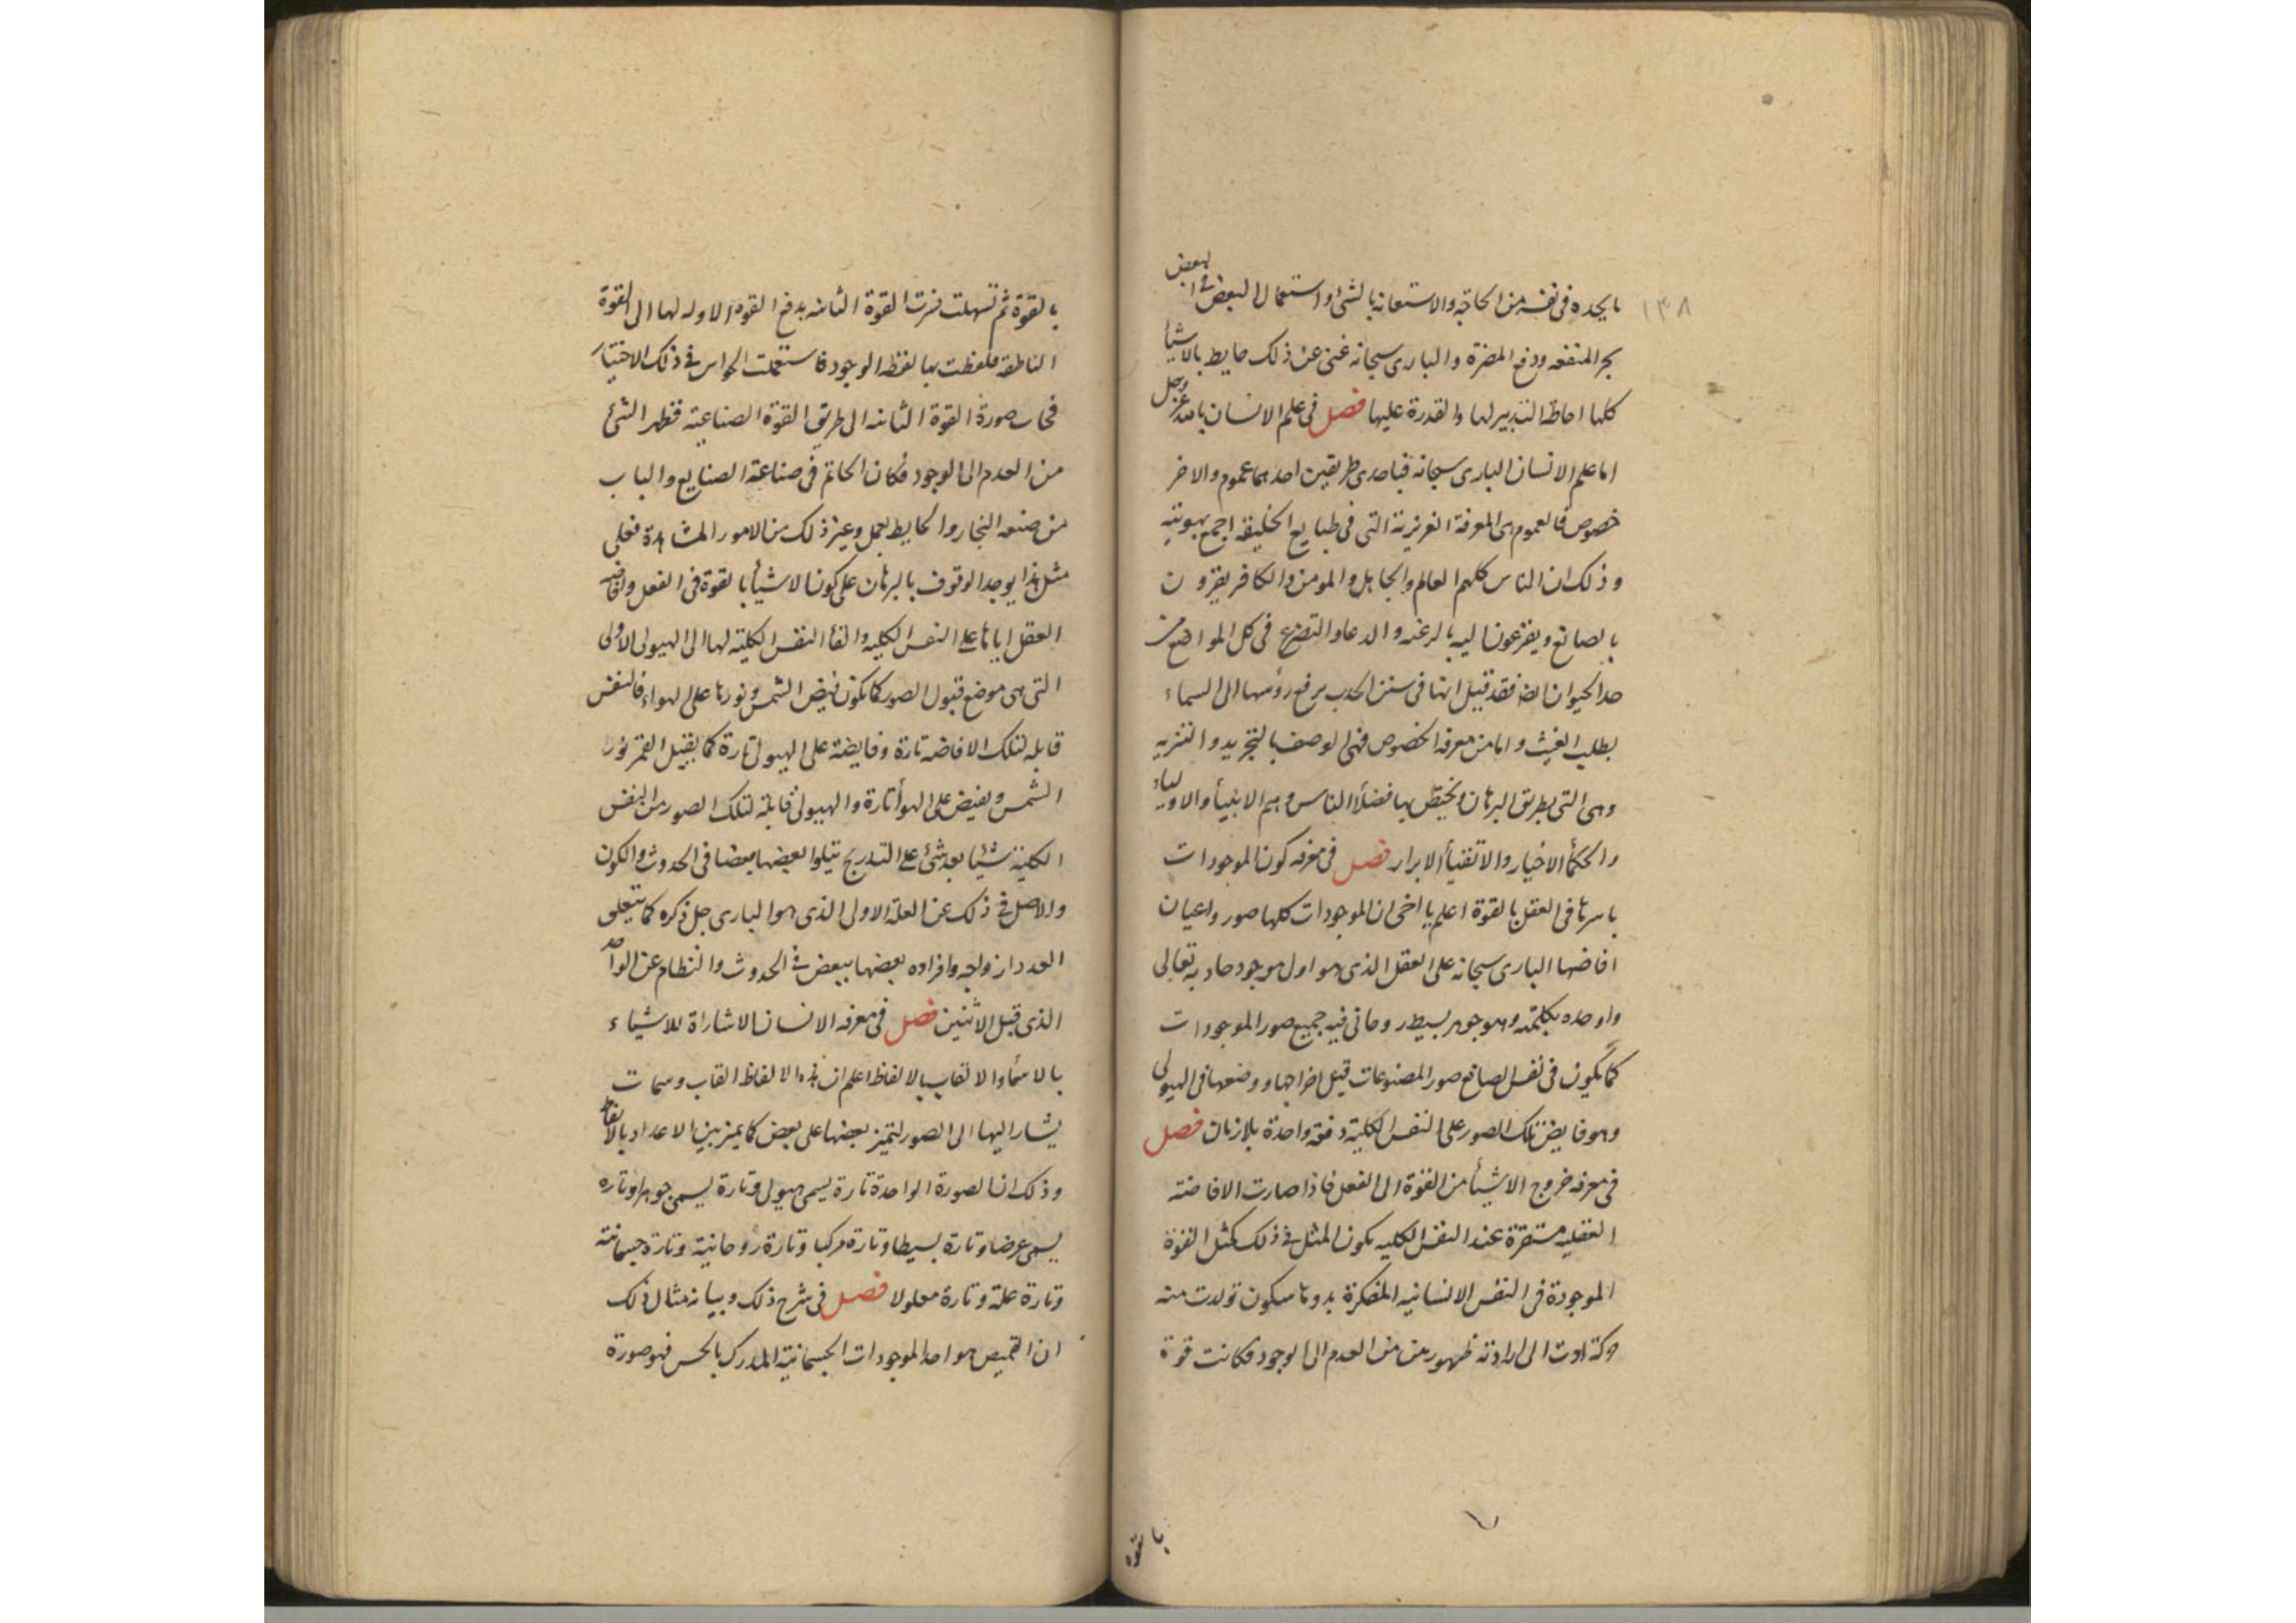 ١٣٨
بعض
ما يجده فى نفسه من الحاجة والاستعانة بالشئ واستعمال البعض فى
بجر المنفعه ودفع المضرة والبارى سبحانه غنى عن ذلك حايط بالاشيأ
كلها احاطة التدبير لها والقدرة عليها فصل فى علم الانسان بالله عز وجل
اما علم الانسان البارى سبحانه فباحدى طريقين احدهما عموم والاخر
خصوص فالعموم هى المعرفة الغريزية التى فى طبايع الخليقة اجمع بهويته
وذلك ان الناس كلهم العالم والجاهل والمومن والكافر يقرون
بالصانع ويفزعون اليه بالرغبه والدعا والتضرع فى كل المواضع
حدا لحيوان ايضا فقد قيل انها فى سنن الجدب يرفع رؤسها الى السماء
بطلب الغيث واما من معرفة الخصوص فهى الوصف بالتجريد والتنزيه
وهى التى بطريق البرهان ويختص بها فضلأ الناس وهم الانبيأ والاولياء
والحكمأ الاخيار والاتقيأ الابرار فصل فى معرفه كون الموجودات
باسرها فى العقل بالقوة اعلم يا اخى ان الموجودات كلها صور واعيان
افاضها البارى سبحانه على العقل الذى هو اول موجود جاد به تعالى
واوجده بكلمته وهو جوهر بسيط روحانى فيه جميع صور الموجودات
كما يكون فى نفس الصانع صور المصنوعات قبل اخراجها ووضعها فى الهيولى
وهو فايض تلك الصور على النفس الكلية دفعة واحدة بلا زمان فصل
فى معرفه خروج الاشيأ من القوة الى الفعل فاذا صارت الافاضته
العقليه مستقرة عند النفس الكليه يكون المثل فى ذلك كمثل القوة
الموجودة فى النفس الانسانيه المفكرة بدوها سكون تولدت منه
حركة ادت الى ارادته ظهور من من العدم الى الوجود فكانت قوة
بالقوه
بالقوة ثم تسهلت فبرت القوة الثانيه بدفع القوة الاوله لها الى القوة
الناطقه فلفظت بها لفظه الوجود فاستعملت الحواس فى ذلك الاختيار
فجاب صورة القوة الثانيه الى طريق القوة الصناعية فظهر الشئ
من العدم الى الوجود فكان الخاتم فى صناعة الصنايع والباب
من صنعه النجار والحايط يعمل وغير ذلك من الامور المشاهدة فعلى
مثل هذا يوجد الوقوف بالبرهان على كون الاشيأ بالقوة فى الفعل وافاضه
العقل اياها على النفس الكليه والقأ النفس الكليته لها الى الهيولى الاولى
التى هى موضع قبول الصور كما يكون فيض الشمس ونورها على الهواء فالنفس
قابله لتلك الافاضه تارة وفايضة على الهيولى تارة كما يقبل القمر نور
الشمس ويفيض على الهوأ تارة والهيولى قابلة لتلك الصور من النفس
الكلية شيئا بعد شئ على التدريج يتلوا بعضها بعضا فى الحدوث والكون
والاصل فى ذلك عن العلة الاولى الذى هو البارى جل ذكره كما يتعلق
العدد ازواجه وافراده بعضها ببعض فى الحدوث والنظام عن الواحد
الذى قبل الاثنين فصل فى معرفه الانسان الاشاراة للاشياء
بالاسمأ والالقاب بالالفاظ اعلم ان هذه الالفاظ القاب وسمات
يشار اليها الى الصور لتميز بعضها على بعض كما يميز بين الاعداد بالالفاظ
وذلك ان الصورة الواحدة تارة يسمى هيولى وتارة يسمى جوهرا وتاره
يسمى عرضا وتارة بسيطا وتارة مركبا وتارة روحانية وتارة جسمانية
وتارة علة وتارة معلولا فصل فى شرح ذلك وبيانه مثال ذلك
ان القميص هو احد الموجودات الجسمانية المدرك بالحس فهو صورة